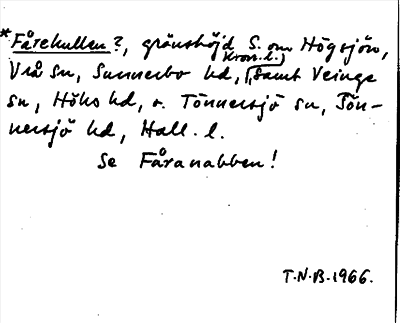 *Fårekullen?, gränshöjd S. om Högsjön,
Vrå sn, Sunnerbo hd, Kron. l., samt Veinge
sn, Höks hd, o. Tönnersjö sn, Tön-
nersjö hd, Hall. l.
Se Fåranabben!
T.N.B. 1966.